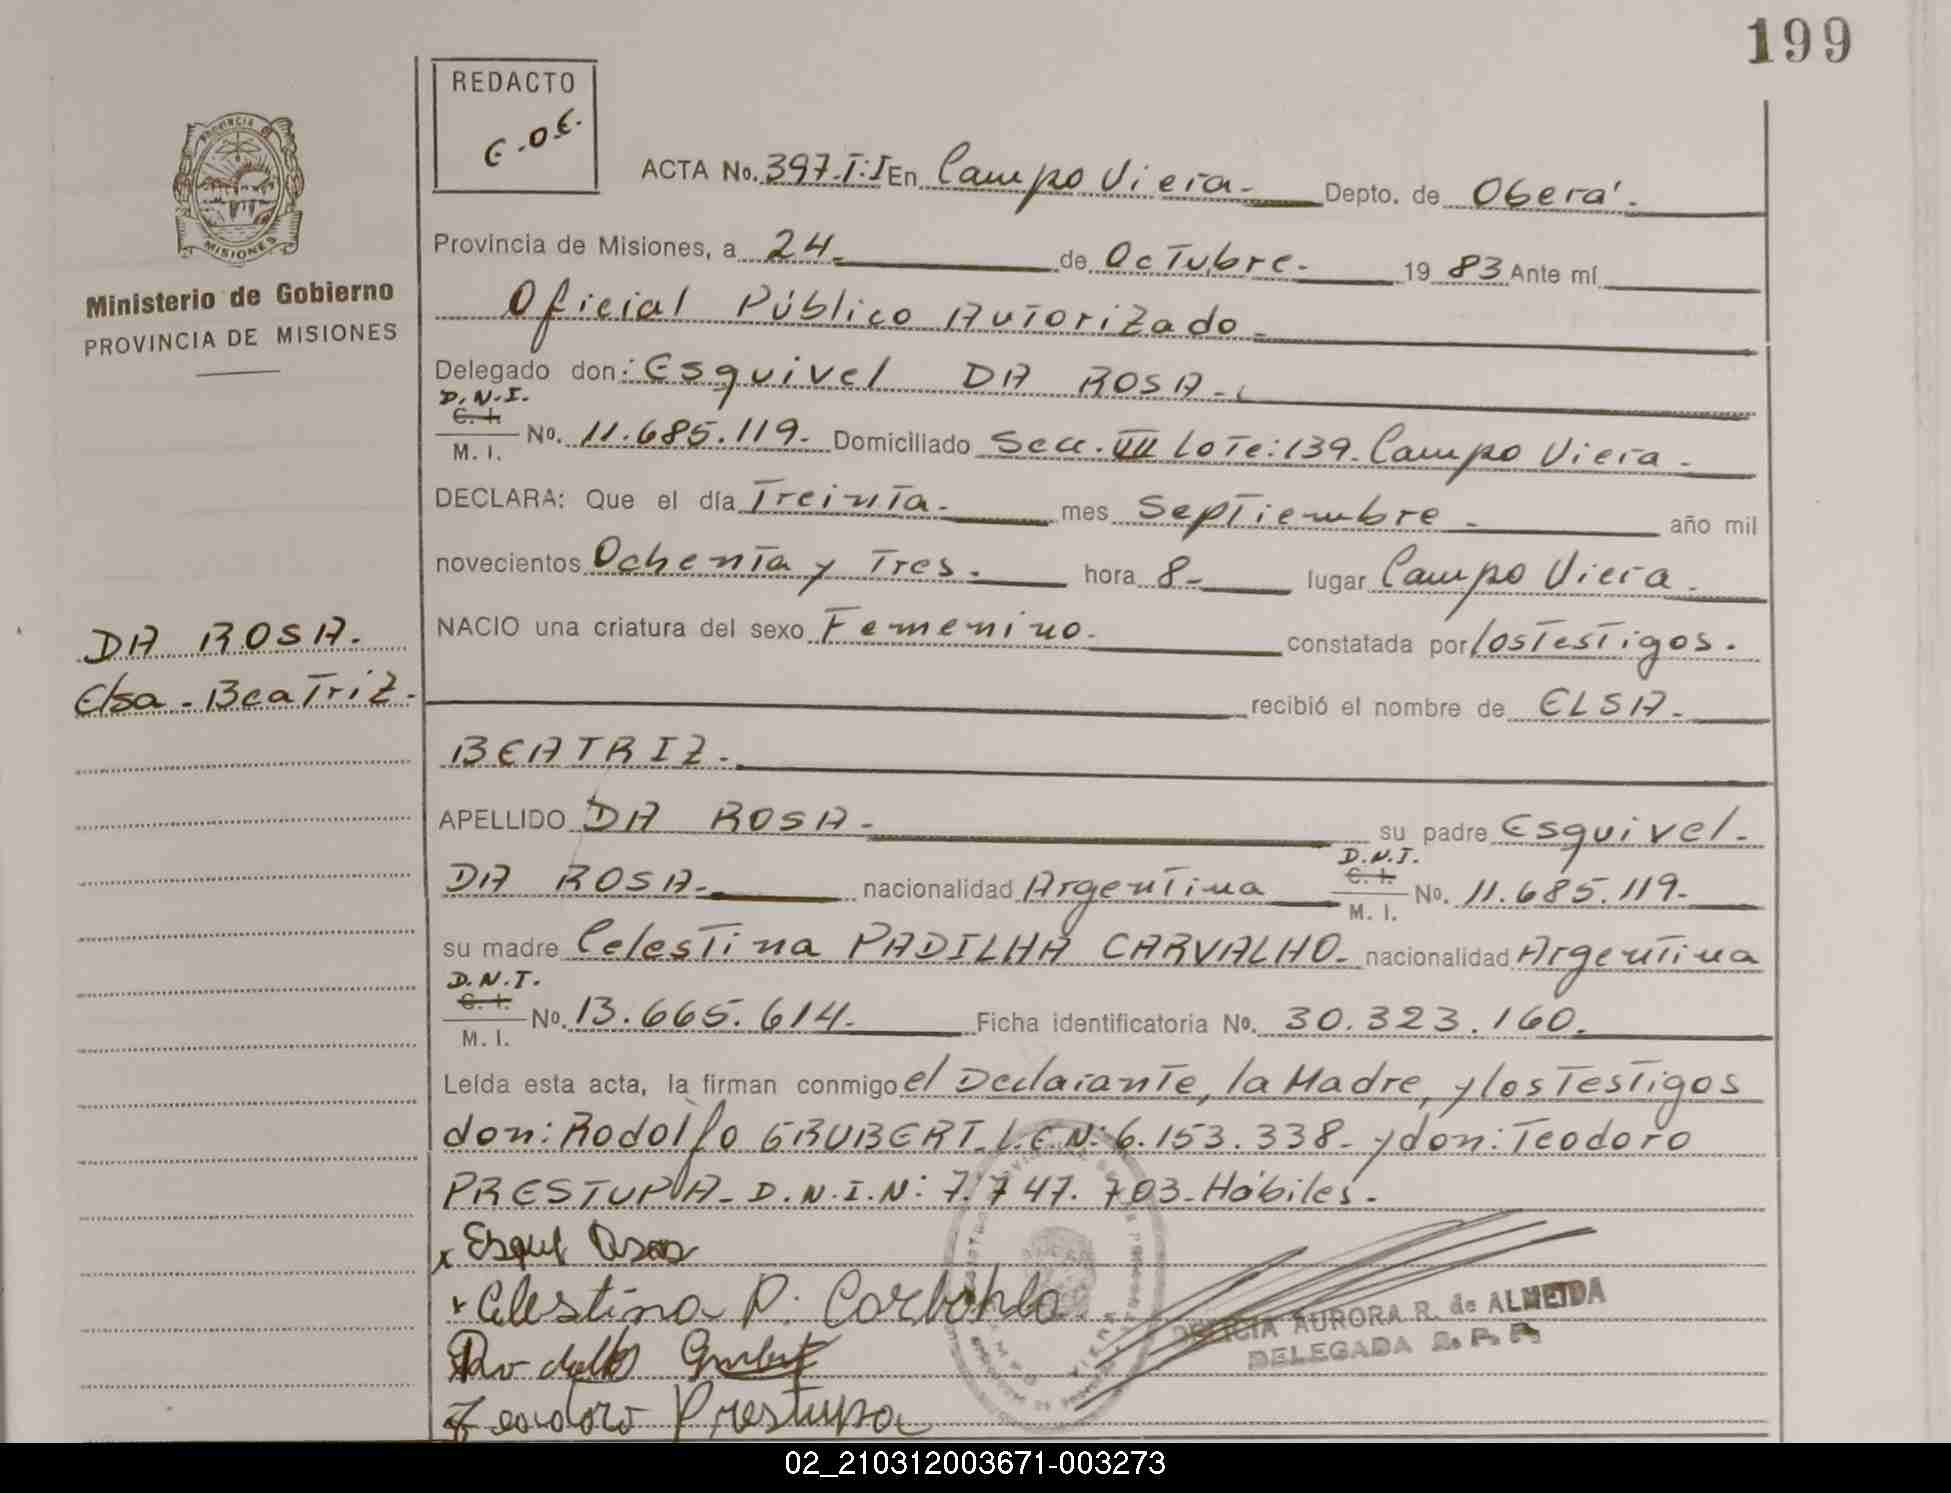 199
REDACTO
E.O.E.
PROVINCIA
MISIONES
Ministerio de Gobierno
PROVINCIA DE MISIONES
ACTA No. 397.T:I En Campo Viera.- Depto. de Oberá.
Provincia de Misiones, a 24. de Octubre. 19 83 Ante mí
Oficial Público Autorizado.
Delegado don: Esquivel DA ROSA.-
D.N.I.
C. I.
M. I. No. 11.685.119. Domiciliado Secc. VII Lote: 139. Campo Viera.
DECLARA: Que el día Treinta. mes Septiembre. año mil
novecientos Ochenta y Tres. hora 8- lugar Campo Viera.
NACIO una criatura del sexo Femenino. constatada por los Testigos.
DA ROSA.
Elsa - Beatriz.
recibió el nombre de ELSA.
BEATRIZ.
APELLIDO DA ROSA. su padre Esquivel.
DA ROSA. nacionalidad Argentina D.N.I. C. I. M. I. No. 11.685.119.
su madre Celestina PADILHA CARVALHO. nacionalidad Argentina
D.N.I.
C. I.
M. I. No. 13.665.614. Ficha identificatoria No. 30.323.160.
Leída esta acta, la firman conmigo el Declarante, la Madre, y los Testigos
don: Rodolfo GRUBERT. L.E.N: 6.153.338. y don: Teodoro
PRESTUPA. D.N.I.N: 7.747.703. Hábiles.
x
Celestina P.
Teodoro Prestupa
AURORA R. de ALMEIDA
DELEGADA
02_210312003671-003273